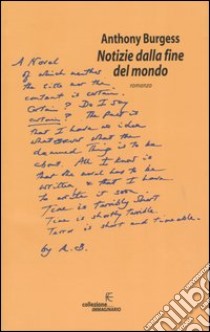 Anthony Burgess
Notizie dalla fine
del mondo
romanzo
A Novel
of which neither
the title nor the
content is certain.
Certain? Do I say
certain? The fact is
that I have no idea
whatsoever what the
damned thing is to be
about. All I know is
that the novel has to be
written & that I have
to write it soon.
Time is terribly short
Time is shortly terrible
Terror is short and timeable
by A. B.
collezione
IMMAGINARIO